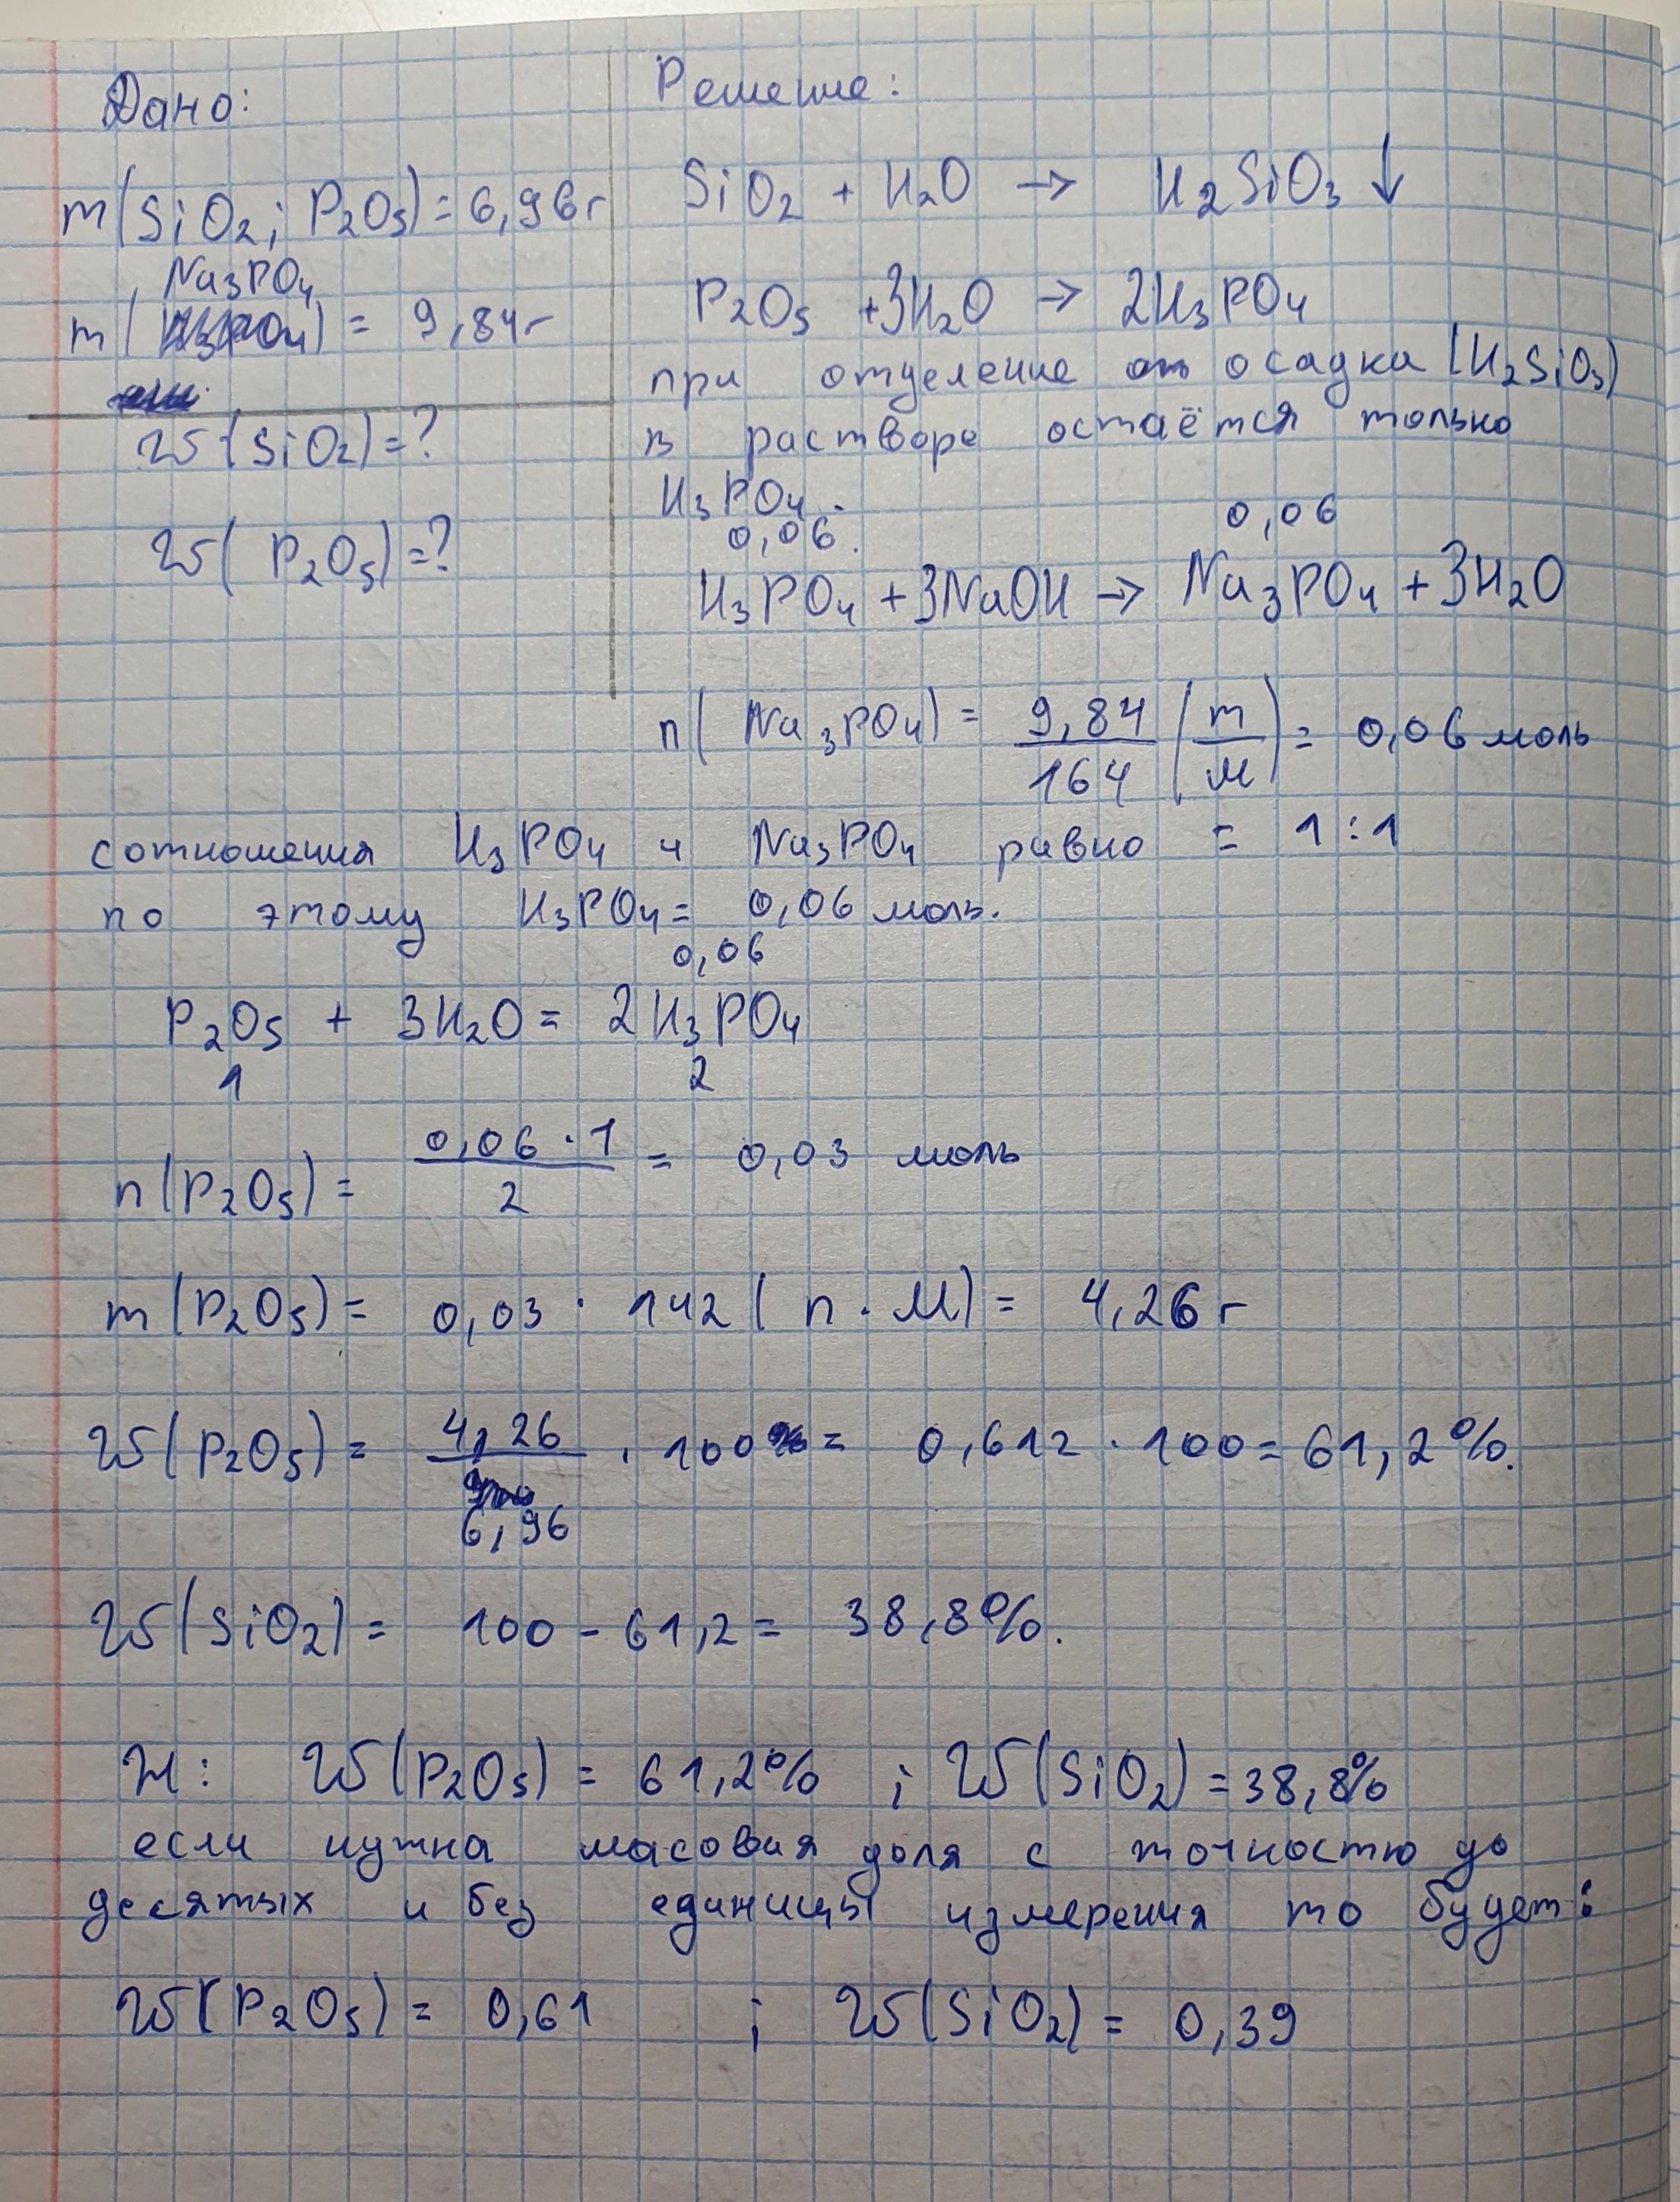 Дано:
m(SiO2; P2O5) = 6,96г
Na3PO4
m(H3PO4) = 9,84г
W(SiO2)=?
W(P2O5)=?
Решение:
SiO2 + H2O → H2SiO3↓
P2O5 +3H2O → 2H3PO4
при отделение от осадка (H2SiO3)
в растворе остаётся только
H3PO4.
0,06. 0,06
H3PO4 + 3NaOH → Na3PO4 + 3H2O
n(Na3PO4) = 9,84/164 (m/M) = 0,06 моль
сотношения H3PO4 и Na3PO4 равно = 1:1
по этому H3PO4 = 0,06 моль.
0,06
P2O5 + 3H2O = 2H3PO4
1 2
n(P2O5) = 0,06·1/2 = 0,03 моль
m(P2O5) = 0,03 · 142 (n·M) = 4,26г
W(P2O5) = 4,26/6,96 · 100% = 0,612 · 100 = 61,2%.
W(SiO2) = 100 - 61,2 = 38,8%.
И: W(P2O5) = 61,2% ; W(SiO2) = 38,8%
если нужна масовая доля с точностю до
десятых и без единицы измерения то будет:
W(P2O5) = 0,61 ; W(SiO2) = 0,39